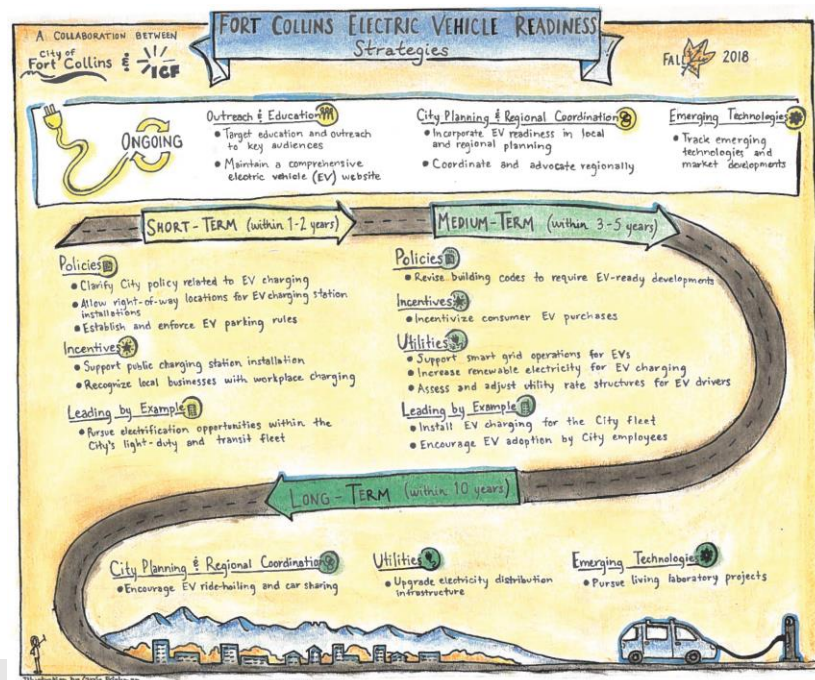 A COLLABORATION BETWEEN
City of
Fort Collins
and
ICF
FORT COLLINS ELECTRIC VEHICLE READINESS
Strategies
FALL 2018
ONGOING
Outreach & Education
• Target education and outreach
to key audiences
• Maintain a comprehensive
electric vehicle (EV) website
City Planning & Regional Coordination
• Incorporate EV readiness in local
and regional planning
• Coordinate and advocate regionally
Emerging Technologies
• Track emerging
technologies and
market developments
SHORT-TERM (within 1-2 years)
Policies
• Clarify City policy related to EV charging
• Allow right-of-way locations for EV charging station
installations
• Establish and enforce EV parking rules
Incentives
• Support public charging station installation
• Recognize local businesses with workplace charging
Leading by Example
• Pursue electrification opportunities within the
City's light-duty and transit fleet
MEDIUM-TERM (within 3-5 years)
Policies
• Revise building codes to require EV-ready developments
Incentives
• Incentivize consumer EV purchases
Utilities
• Support smart grid operations for EVs
• Increase renewable electricity for EV charging
• Assess and adjust utility rate structures for EV drivers
Leading by Example
• Install EV charging for the City fleet
• Encourage EV adoption by City employees
LONG-TERM (within 10 years)
City Planning & Regional Coordination
• Encourage EV ride-hailing and car sharing
Utilities
• Upgrade electricity distribution
infrastructure
Emerging Technologies
• Pursue living laboratory projects
Illustration by